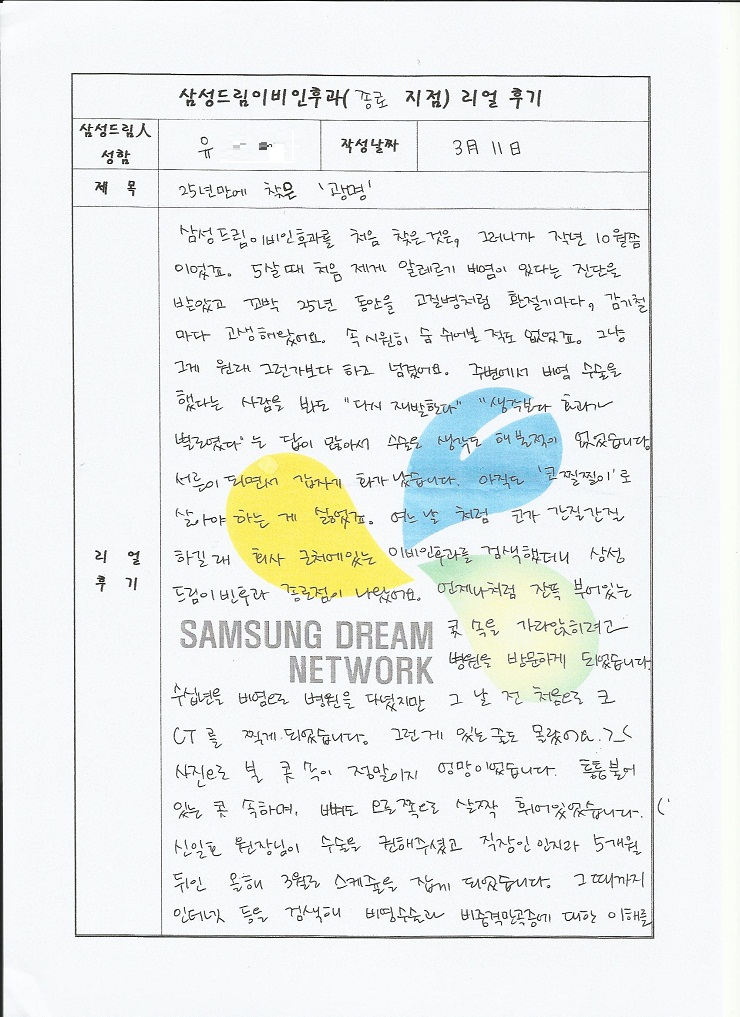 삼성드림이비인후과(종로 지점) 리얼 후기
삼성드림人 성함
유
작성날짜
3月 11日
제 목
25년만에 찾은 '광명'
리 얼 후 기
삼성드림이비인후과를 처음 찾은것은, 그러니까 작년 10월쯤
이었죠. 5살때 처음 제게 알레르기 비염이 있다는 진단을
받았고 꼬박 25년 동안을 고질병처럼 환절기마다, 감기철
마다 고생해왔어요. 속 시원히 숨 쉬어본 적도 없었죠. 그냥
그게 원래 그런가보다 하고 넘겼어요. 주변에서 비염 수술을
했다는 사람을 봐도 "다시 재발한다" "생각보다 효과가
별로였다"는 답이 많아서 수술은 생각도 해본적이 없었습니다
서른이 되면서 갑자기 화가 났습니다. 아직도 '코찔찔이'로
살아야 하는 게 싫었죠. 어느 날 처럼 코가 간질간질
하길래 회사 근처에있는 이비인후과를 검색했더니 삼성
드림이빈후과 종로점이 나왔어요. 언제나처럼 잔뜩 부어있는
콧 속을 가라앉히려고
병원을 방문하게 되었습니다.
SAMSUNG DREAM
NETWORK
수십년을 비염으로 병원을 다녔지만 그 날 전 처음으로 코
CT를 찍게 되었습니다. 그런게 있는 줄도 몰랐어요.ㄱ<
사진으로 본 콧 속이 정말이지 엉망이었습니다. 퉁퉁불어
있는 콧 속하며, 뼈도 오른쪽으로 살짝 휘어있었습니다. ('
신일호 원장님이 수술을 권해주셨고 직장인인지라 5개월
뒤인 올해 3월로 스케쥴을 잡게 되었습니다. 그때까지
인터넷 등을 검색해 비염수술과 비중격만곡증에 대한 이해를